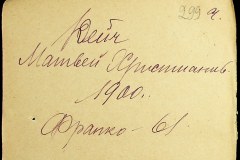 299 я.
Кейч
Матвей Христианов.
1900.
Франко - 61